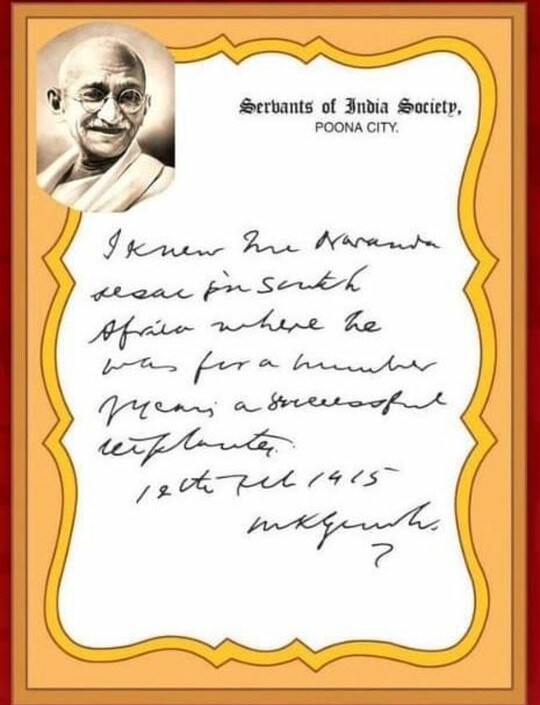 Servants of India Society,
POONA CITY.
I knew Mr Naranda
sesac in South
Africa where he
was for a number
years a successful
teaplanter.
12th Feb 1915
MKGandhi